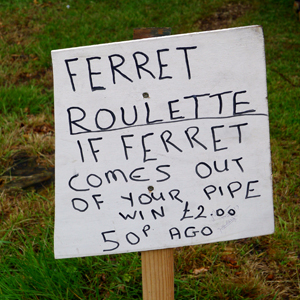 FERRET
ROULETTE
IF FERRET
COMES OUT
OF YOUR PIPE
WIN £2.00
50P AGO